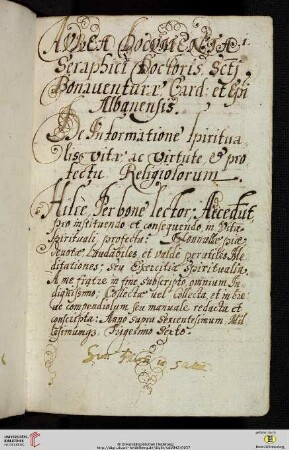 AVREA DOCVMENTA
Seraphici Doctoris Scti
Bonaventuræ Card: et Epi
Albanensis.
De Informatione Spiritua
lis vitæ ac virtute, et pro
fectu Religiosorum.
Hisce, Perbone lector, Accedūt
Pro instituendo et consequendo in Vita
Spirituali profectu: Nonnullæ piæ
devotæ Laudabiles, et valde perutiles Me
ditationes; seu Exercitia Spiritualia
A me fratre in fine subscripto omnium In
dignissimo; Collectæ vel collecta, et in bre
ve compendiolum seu manuale redacta et
conscripta: Anno supra Sexcentesimum Mil
lesimumq3 Trigesimo Sexto.
© Universitätsbibliothek Heidelberg